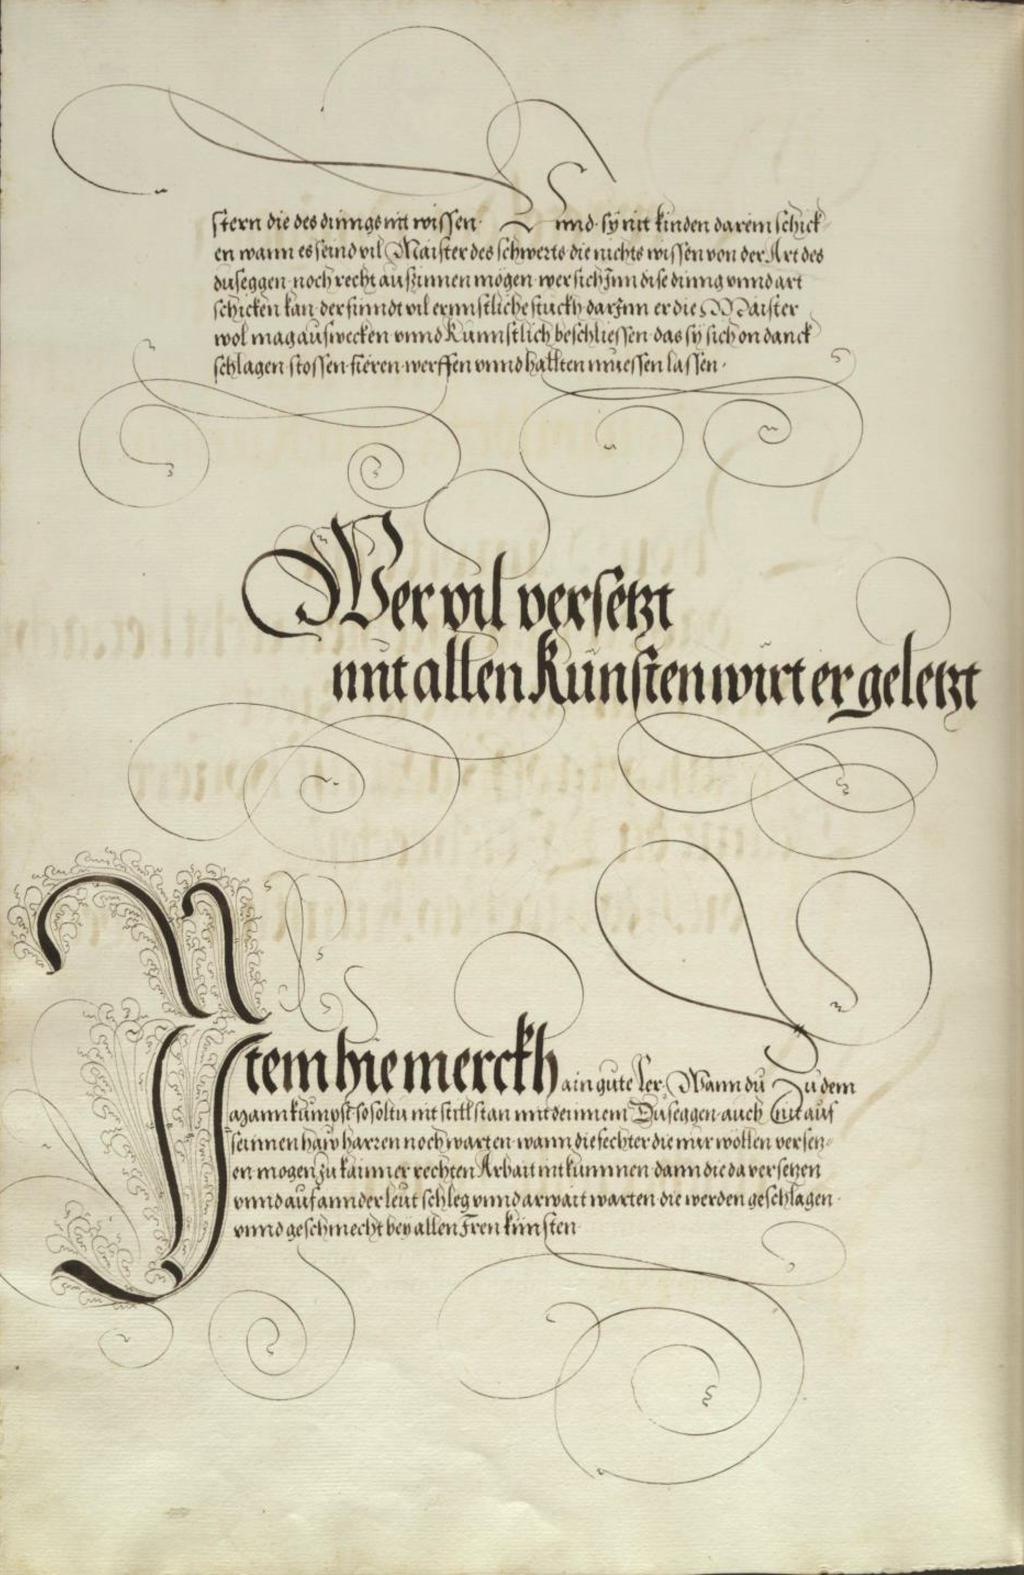 stern die des dinngs nit wissen. Unnd sy nit kinden darein schick
en wann es seind vil Maister des schwerts die nichts wissen von der Art des
duseggen noch recht aus sinnen mögen wer sich Inn dise dinng unnd art
schicken kan der finndt vil ernnstliche stuckh darInn er die Maister
wol mag auswecken unnd kunnstlich beschliessen das sy sich on danck
schlagen stossen fieren werffen unnd hallten muessen lassen.
Wer vil versetzt
mit allen Künsten wirt er geletzt
Item hie merckh ain gute Ler. Wann du Zu dem
Mann kumpst so soltu nit still stan mit deinnem Duseggen auch nit auf
seinnen haw harren noch warten wann die fechter die nur wöllen versetz
en mogen zu kainner rechten Arbait nit kummen dann die da versetzen
unnd auf annder leut schleg unnd arwait warten die werden geschlagen
unnd geschmecht bey allen Iren künsten